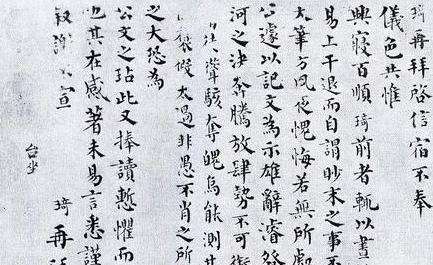 琦再拜啓信宿不奉
儀色共惟
興寢百順琦前者輒以晝
易上干退而自謂眇末之事不
大筆方夙夜愧悔若無所處
公遽以記文為示雄辭濬發
河之決奔騰放肆勢不可
聳駭奪魄烏能測其
褒假太過非愚不肖之所
之大恐為
公文之玷此又捧讀慙懼而
也其在感著未易言悉謹
叙謝不宣
琦再
台坐